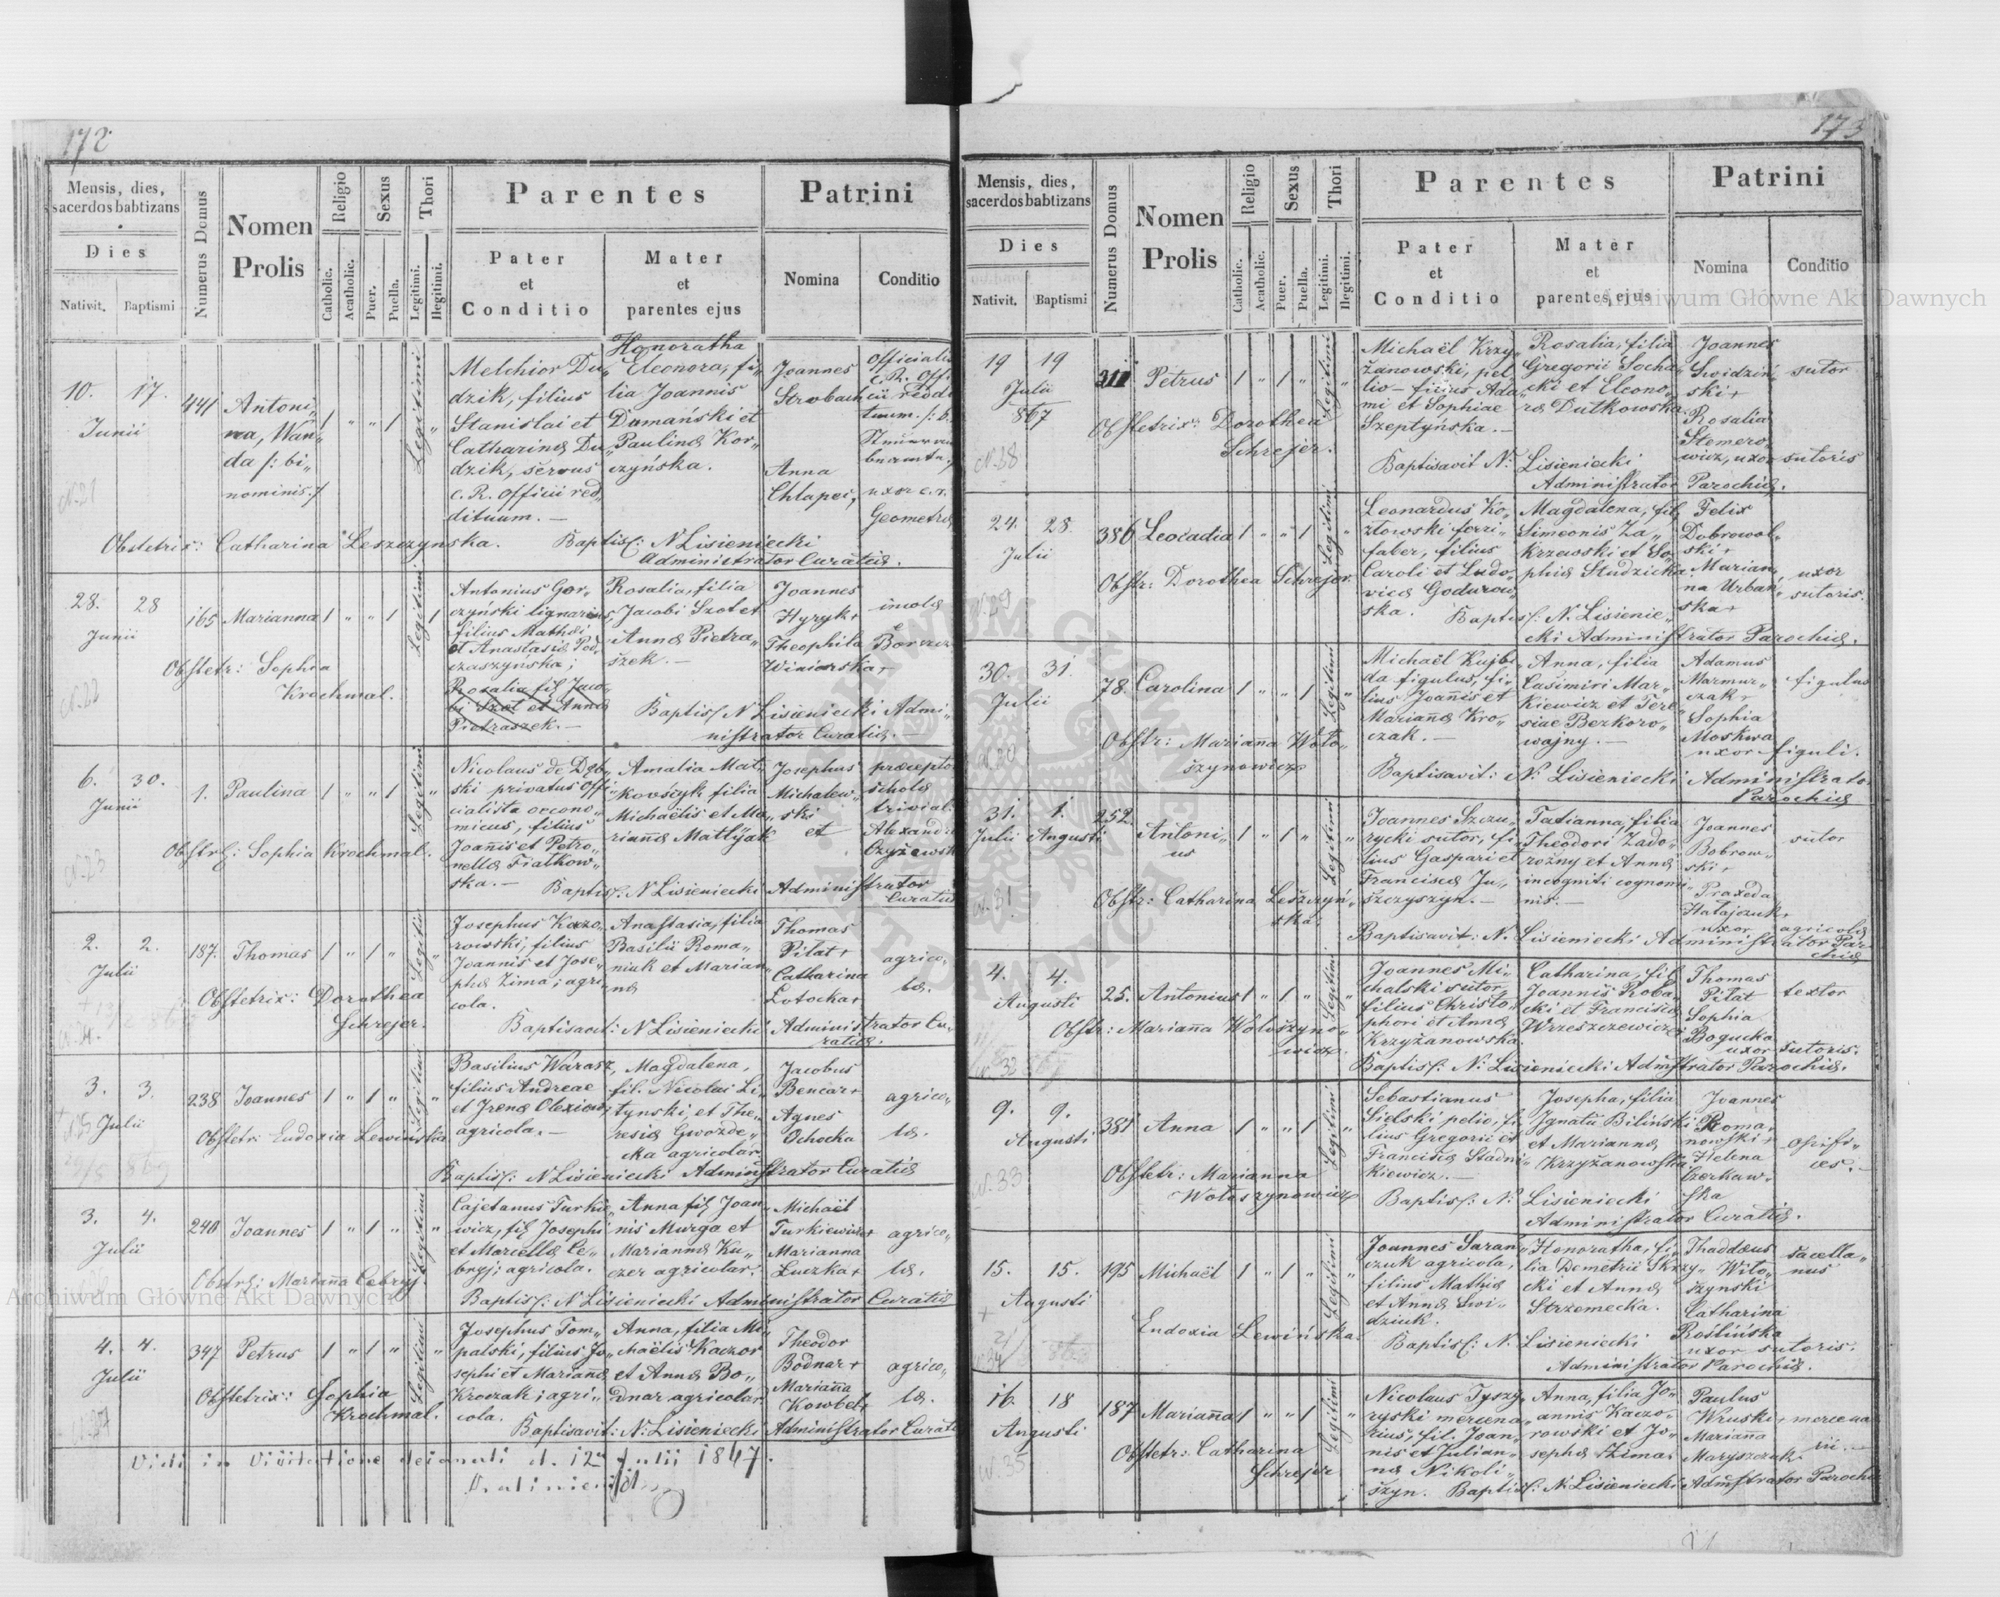 172
Mensis, dies,
sacerdos babtizans
Dies
Nativit. Baptismi
Numerus Domus
Nomen
Prolis
Religio
Catholic.
Acatholic.
Sexus
Puer.
Puella.
Thori
Legitimi.
Illegitimi.
Parentes
Pater
et
Conditio
Mater
et
parentes ejus
Patrini
Nomina
Conditio
10. 17.
Junii
441
Antoni„
na, Wan„
da /: bi„
nominis :/
Legitimi
Melchior Du„
dzik, filius
Stanislai et
Catharinæ Du„
dzik, servus
c. R. officii red„
dituum. —
Honoratha
Eleonora, fi„
lia Joannis
Domański et
Paulinæ Kor„
czyńska.
Joannes
Strobach
Anna
Chlapec,
uxor c. r.
Geometræ
Obstetrix: Catharina Leszczynska. Baptis: N Lisieniecki
Administrator Curatiæ.
28. 28
Junii
165 Marianna
Legitimi
Antonius Gor„
czyński lignarius,
filius Mathæi
et Anastasiæ Pod„
czaszyńska;
Rosalia fil Jaco„
bi Szot et Annæ
Pietraszek. —
Rosalia, filia
Jacobi Szot et
Annæ Pietra„
szek. —
Joannes
Hyryk +
Theophila
Winiarska +
incolæ
Obstetr: Sophia
Krochmal.
Baptis: N Lisieniecki Admi„
nistrator Curatiæ. —
6. 30.
Junii
1. Paulina
Legitimi
Nicolaus de Dąb„
ski privatus Offi„
cialista oecono„
micus, filius
Joannis et Petro„
nellæ Fiatkow„
ska. —
Amalia Mat„
kovscyk filia
Michaëlis et Ma„
riannæ Matlyak
Josephus
Michalow„
ski
et
Alexandra
Obstr: Sophia Krochmal.
Baptis: N Lisieniecki Administrator
Curatiæ
2. 2.
Julii
187. Thomas
Josephus Kazo„
rowski, filius
Joannis et Jose„
phæ Zima; agri„
cola.
Anastasia, filia
Basilii Roma„
niuk et Marian„
næ
Thomas
Pilat +
Catharina
Lotocka +
agrico„
læ.
Obstetrix: Dorothea
Schrejer.
Baptisavit: N Lisieniecki Administrator Cu„
ratiæ.
3. 3.
Julii
238 Joannes
Legitimi
Basilius Warasz,
filius Andreae
et Irenæ Olexiew,
agricola. —
Magdalena,
fil. Nicolai Li„
tynski, et The„
resiæ Gwozde„
cka agricolar.
Jacobus
Bencar +
Agnes
Ochocka
agrico„
læ.
Obstetr: Eudoxia Lewińska
Baptis: N Lisieniecki Administrator Curatiæ
3. 4.
Julii
240 Joannes
Legitimi
Cajetanus Turkie„
wicz, fil Josephi
et Marcellæ Ce„
bryj; agricola.
Anna fil Joan„
nis Murga et
Mariannæ Ku„
czer agricolar.
Michaël
Turkiewicz +
Marianna
Luczka +
agrico„
læ.
Obstr: Mariana Cebryj.
Baptis: N Lisieniecki Administrator Curatiæ
4. 4.
Julii
347 Petrus
Legitimi
Josephus Tom„
palski, filius Jo„
sephi et Mariannæ
Kroczak; agri„
cola.
Anna, filia Mi„
chaëlis Kaczor
et Annæ Bo„
dnar agricolar.
Theodor
Bodnar +
Mariana
Kowbel +
agrico„
læ.
Obstetrix: Sophia
Krochmal.
Baptisavit: N: Lisieniecki Administrator Curati
Vidi in Visitatione decanali d. 12 Julii 1847.
173
Mensis, dies,
sacerdos babtizans
Dies
Nativit. Baptismi
Numerus Domus
Nomen
Prolis
Religio
Catholic.
Acatholic.
Sexus
Puer.
Puella.
Thori
Legitimi.
Illegitimi.
Parentes
Pater
et
Conditio
Mater
et
parentes ejus
Patrini
Nomina
Conditio
19 19
Julii
867
311 Petrus
Legitimi
Michaël Krzy„
żanowski, pel„
lio — filius Ada„
mi et Sophiae
Szeptyńska. —
Rosalia, filia
Gregorii Socha„
cki et Eleono„
ræ Dutkowska.
Joannes
Swidziń„
ski +
Rosalia
Stemero„
wicz, uxor
sutor
sutoris
Obstetrix: Dorothea
Schrejer.
Baptisavit N: Lisieniecki
Administrator Parochiæ.
24. 28.
Julii
386 Leocadia
Legitimi
Leonardus Ko„
złowski ferri„
faber, filius
Caroli et Ludo„
vicæ Godurow„
ska.
Magdalena, fil
Simeonis Za„
krzewski et So„
phiæ Studzicka.
Felix
Dobrowol„
ski +
Marian„
na Urbań„
ska +
uxor
sutoris.
Obstr: Dorothea Schrejer.
Baptis: N. Lisienie„
cki Administrator Parochiæ.
30. 31.
Julii
78. Carolina
Legitimi
Michaël Kujbi„
da figulus, fi„
lius Joannis et
Mariannæ Kro„
czak. —
Anna, filia
Casimiri Mar„
kiewicz et Tere„
siae Berkoro„
wajny. —
Adamus
Marmur„
czak +
Sophia
Moskwa
uxor
figulus
figuli.
Obstr: Mariana Woło„
szynowicz
Baptisavit: N: Lisieniecki Administrator
Parochiæ
31. 1.
Julii Augusti
252. Antoni„
us
Legitimi
Joannes Szczu„
rycki sutor, fi„
lius Gaspari et
Franciscæ Ju„
szczyszyn. —
Tatianna, filia
Theodori Zado„
rożny et Annæ
incogniti cognomi„
nis. —
Joannes
Bobrow„
ski +
Praxeda
Hatajczuk +
uxor
sutor
agricolæ
Obstr: Catharina Leszczyń„
ska.
Baptisavit: N. Lisieniecki Administrator Par„
chiæ
4. 4.
Augusti
25. Antonius
Legitimi
Joannes Mi„
chalski sutor,
filius Christo„
phori et Annæ
Krzyżanowska.
Catharina, fil
Joannis Roba„
cki et Franciscæ
Wrzeszczewicz
Thomas
Pilat
Sophia
Bogucka
uxor
textor
sutoris.
Obstr: Mariana Wołoszyno„
wicz.
Baptis: N: Lisieniecki Admistrator Parochiæ.
9. 9.
Augusti
381 Anna
Legitimi
Sebastianus
Sielski pelio, fi„
lius Gregorii et
Franciscæ Stadni„
kiewicz. —
Josepha, filia
Ignatii Biliński
et Mariannæ
Krzyżanowska.
Joannes
Roma„
nowski +
Helena
Czerkaw„
ska
opifi„
ces. —
Obstetr: Marianna
Wołoszynowicz
Baptis: N: Lisieniecki
Administrator Curatiæ.
15. 15.
Augusti
195 Michaël
Legitimi
Joannes Saran„
czuk agricola,
filius Mathiæ
et Annæ Swi„
dziuk.
Honoratha, fi„
lia Demetrii Skrzy„
cki et Annæ
Strzemecka.
Thaddæus
Wito„
szynski
Catharina
Roslińska
uxor
sacella„
nus
sutoris.
Eudoxia Lewińska.
Baptis: N. Lisieniecki
Administrator Parochiæ.
16. 18
Augusti
187 Mariana
Legitimi
Nicolaus Tyszy„
ryski mercena„
rius, fil. Joan„
nis et Julian„
næ Nikoli„
szyn.
Anna, filia Jo„
annis Kaczo„
rowski et Jo„
sephæ Zima.
Paulus
Wruski +
Mariana
Maryszczuk
mercena
rii. —
Obstetr: Catharina
Schrejer
Baptis: N: Lisieniecki Admistrator Parochi
Archiwum Główne Akt Dawnych
Archiwum Główne Akt Dawnych